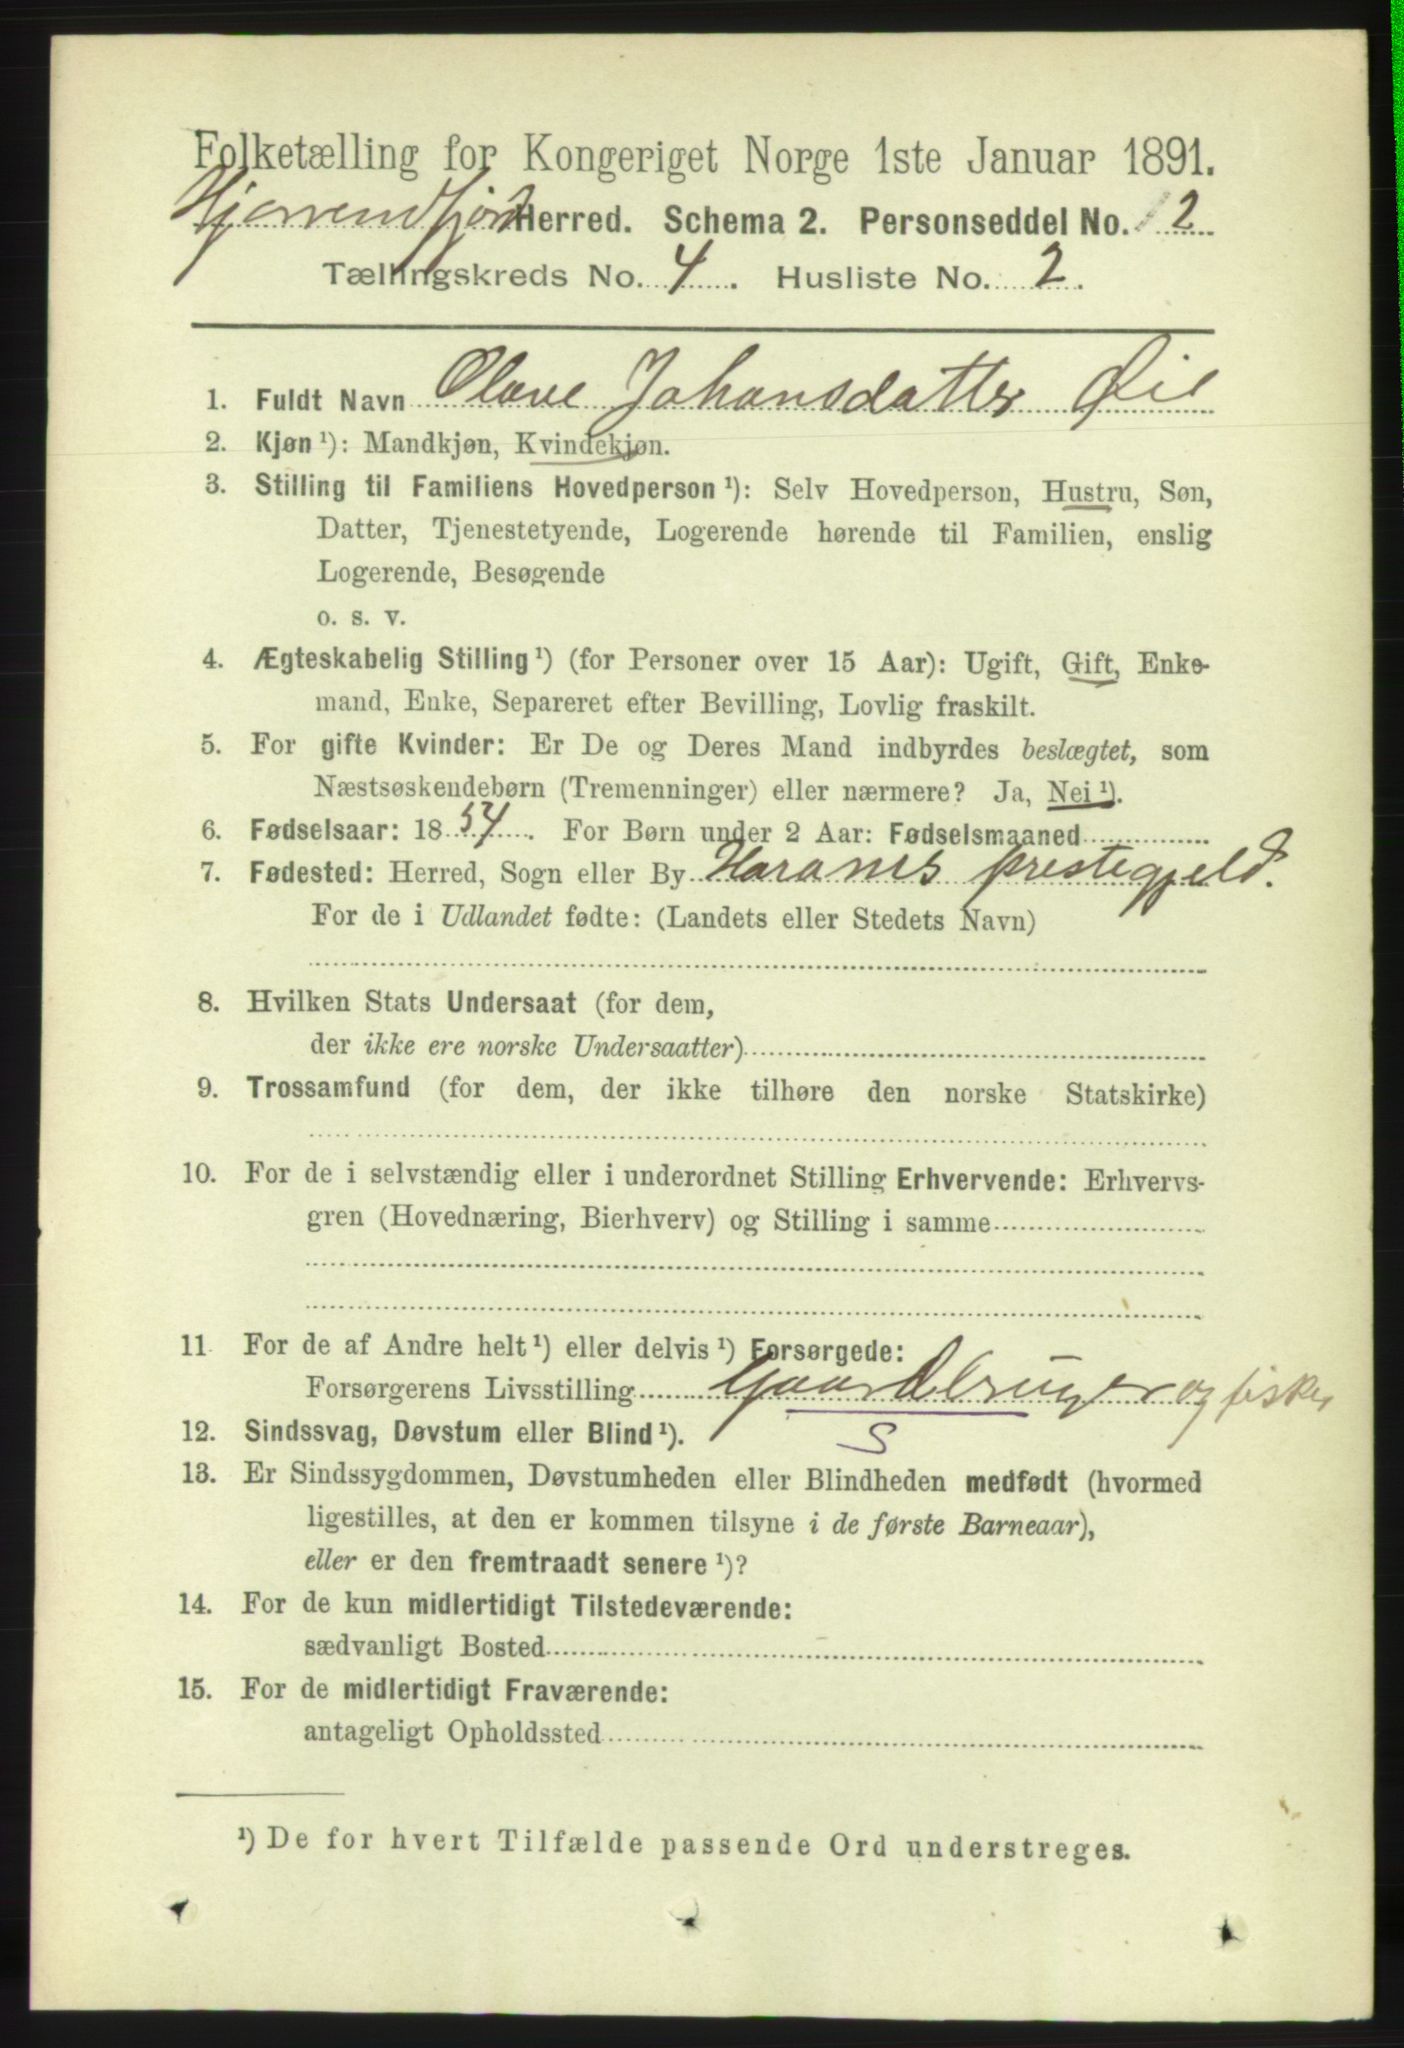 Folketælling for Kongeriget Norge 1ste Januar 1891.
Hjørrendfjord Herred. Schema 2. Personseddel No. 2
Tællingskreds No. 4. Husliste No. 2.
1. Fuldt Navn Olave Johansdatter Øie
2. Kjøn ¹): Mandkjøn, Kvindekjøn.
3. Stilling til Familiens Hovedperson ¹): Selv Hovedperson, Hustru, Søn,
Datter, Tjenestetyende, Logerende hørende til Familien, enslig
Logerende, Besøgende
o. s. v.
4. Ægteskabelig Stilling ¹) (for Personer over 15 Aar): Ugift, Gift, Enke-
mand, Enke, Separeret efter Bevilling, Lovlig fraskilt.
5. For gifte Kvinder: Er De og Deres Mand indbyrdes beslægtet, som
Næstsøskendebørn (Tremenninger) eller nærmere? Ja, Nei ¹).
6. Fødselsaar: 1854. For Børn under 2 Aar: Fødselsmaaned
7. Fødested: Herred, Sogn eller By Harams prestegjeld.
For de i Udlandet fødte: (Landets eller Stedets Navn)
8. Hvilken Stats Undersaat (for dem,
der ikke ere norske Undersaatter)
9. Trossamfund (for dem, der ikke tilhøre den norske Statskirke)
10. For de i selvstændig eller i underordnet Stilling Erhvervende: Erhvervs-
gren (Hovednæring, Bierhverv) og Stilling i samme
11 For de af Andre helt ¹) eller delvis ¹) Forsørgede:
Forsørgerens Livsstilling Gaardbruger og fisker
12. Sindssvag, Døvstum eller Blind ¹). S
13. Er Sindssygdommen, Døvstumheden eller Blindheden medfødt (hvormed
ligestilles, at den er kommen tilsyne i de første Barneaar),
eller er den fremtraadt senere ¹)?
14. For de kun midlertidigt Tilstedeværende:
sædvanligt Bosted
15. For de midlertidigt Fraværende:
antageligt Opholdssted
¹) De for hvert Tilfælde passende Ord understreges.